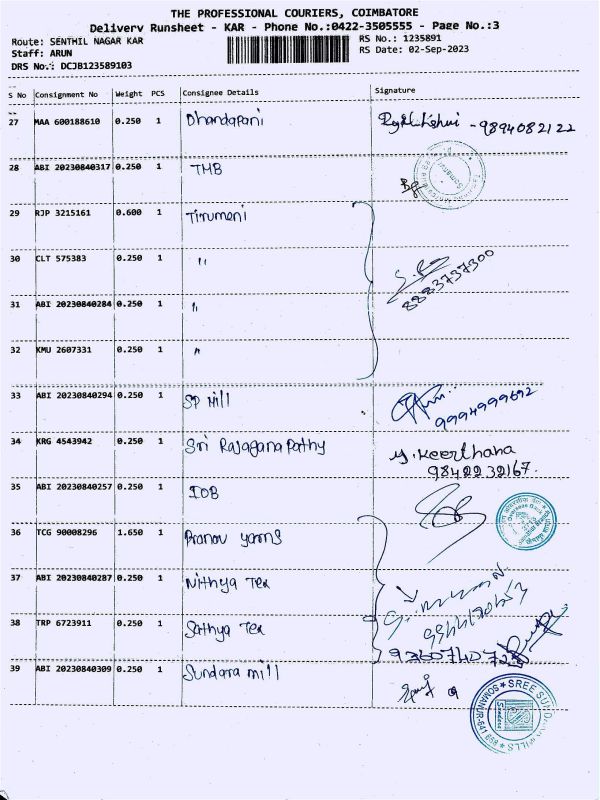 THE PROFESSIONAL COURIERS, COIMBATORE
Delivery Runsheet - KAR - Phone No.:0422-3505555 - Page No.:3
Route: SENTHIL NAGAR KAR
Staff: ARUN
DRS No.: DCJB123589103
RS No.: 1235891
RS Date: 02-Sep-2023
S No Consignment No Weight PCS Consignee Details Signature
27 MAA 600188610 0.250 1 Dhandapani - 9894082122
28 ABI 20230840317 0.250 1 TMB
29 RJP 3215161 0.600 1 Tirumeni
30 CLT 575383 0.250 1 "
8883737300
31 ABI 20230840284 0.250 1 "
32 KMU 2607331 0.250 1 "
33 ABI 20230840294 0.250 1 SP Mill 9994999692
34 KRG 4543942 0.250 1 Sri Rajaganapathy Y. Keerthana
9842232167.
35 ABI 20230840257 0.250 1 IOB
36 TCG 90008296 1.650 1 Pranav yarns
37 ABI 20230840287 0.250 1 Nithya Tex
38 TRP 6723911 0.250 1 Sathya Tex
39 ABI 20230840309 0.250 1 Sundara mill